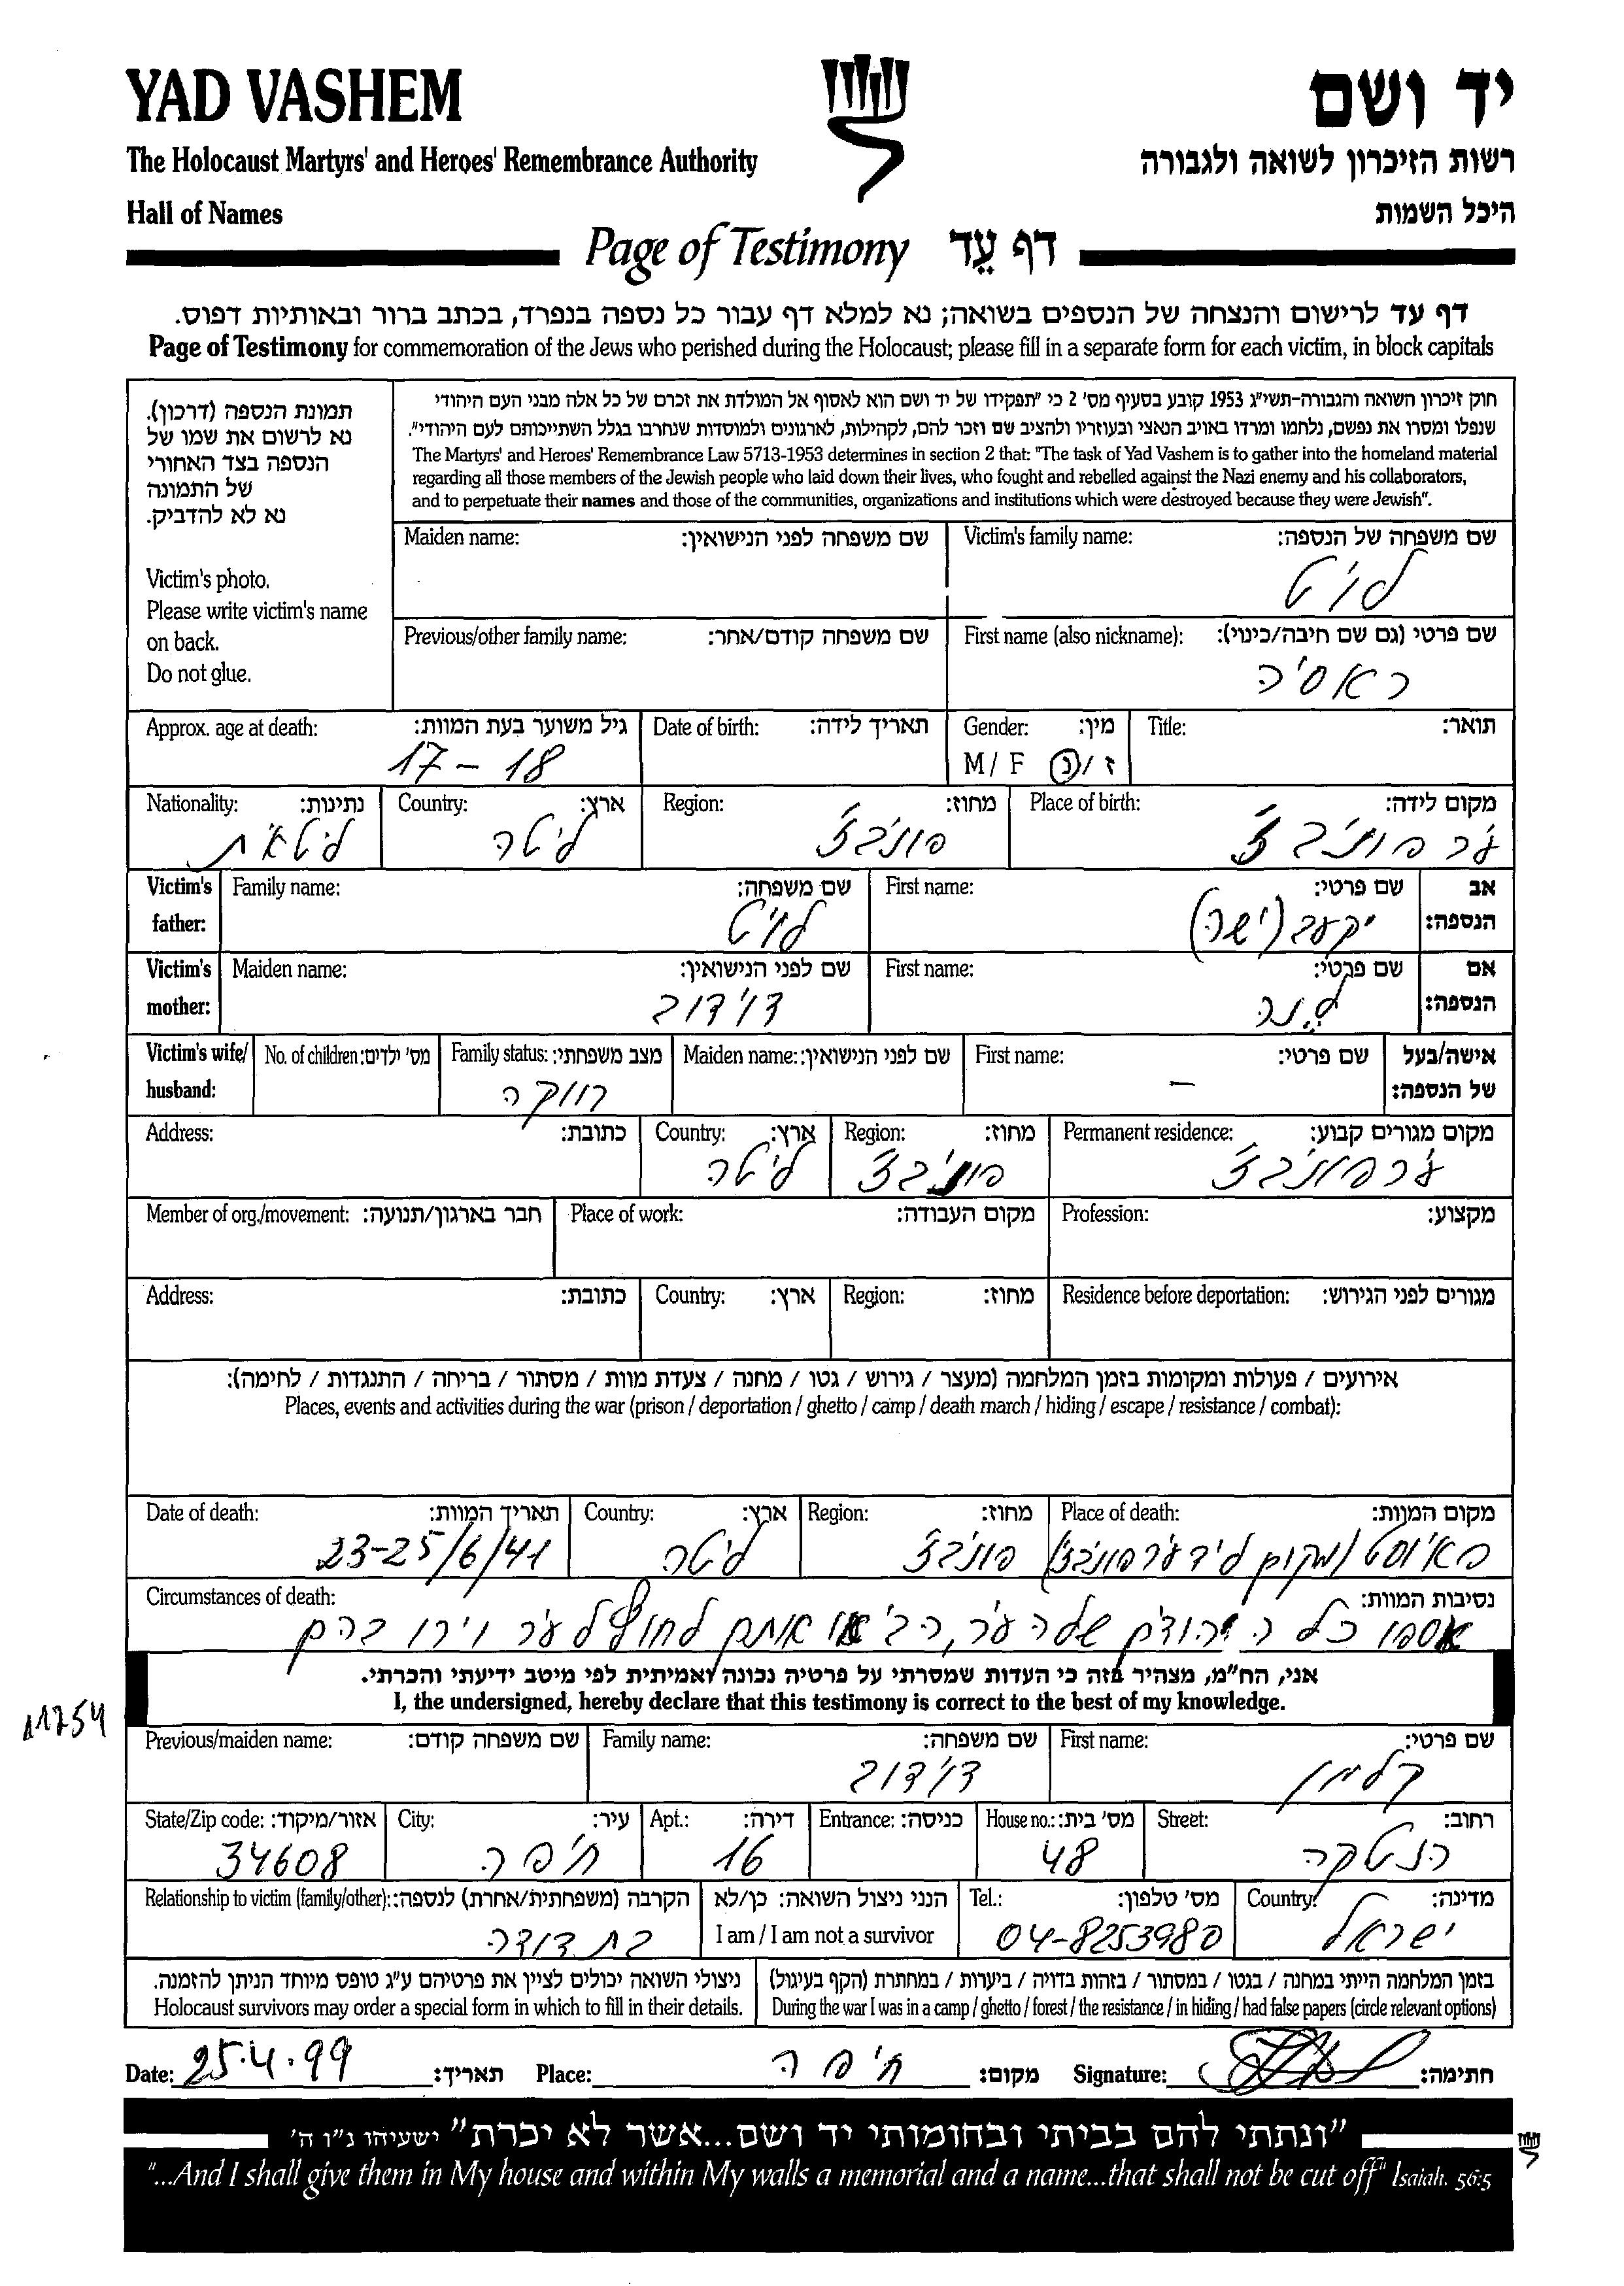 YAD VASHEM
יד ושם
The Holocaust Martyrs' and Heroes' Remembrance Authority
רשות הזיכרון לשואה ולגבורה
Hall of Names
היכל השמות
Page of Testimony דף עֵד
דף עד לרישום והנצחה של הנספים בשואה; נא למלא דף עבור כל נספה בנפרד, בכתב ברור ובאותיות דפוס.
Page of Testimony for commemoration of the Jews who perished during the Holocaust; please fill in a separate form for each victim, in block capitals
תמונת הנספה (דרכון).
נא לרשום את שמו של
הנספה בצד האחורי
של התמונה
נא לא להדביק.
Victim's photo.
Please write victim's name
on back.
Do not glue.
חוק זיכרון השואה והגבורה-תשי"ג 1953 קובע בסעיף מס' 2 כי "תפקידו של יד ושם הוא לאסוף אל המולדת את זכרם של כל אלה מבני העם היהודי
שנפלו ומסרו את נפשם, נלחמו ומרדו באויב הנאצי ובעוזריו ולהציב שם וזכר להם, לקהילות, לארגונים ולמוסדות שנחרבו בגלל השתייכותם לעם היהודי".
The Martyrs' and Heroes' Remembrance Law 5713-1953 determines in section 2 that: "The task of Yad Vashem is to gather into the homeland material
regarding all those members of the Jewish people who laid down their lives, who fought and rebelled against the Nazi enemy and his collaborators,
and to perpetuate their names and those of the communities, organizations and institutions which were destroyed because they were Jewish".
Maiden name: שם משפחה לפני הנישואין: Victim's family name: שם משפחה של הנספה:
לויט
Previous/other family name: שם משפחה קודם/אחר: First name (also nickname): שם פרטי (גם שם חיבה/כינוי):
ראסיה
Approx. age at death: גיל משוער בעת המוות: Date of birth: תאריך לידה: Gender: מין: Title: תואר:
17 - 18 M / F ז / נ
Nationality: נתינות: Country: ארץ: Region: מחוז: Place of birth: מקום לידה:
ליטאית ליטה פוניבז' עיר פוניבז'
Victim's father: Family name: שם משפחה: First name: שם פרטי: אב הנספה:
לויט יעקב
Victim's mother: Maiden name: שם לפני הנישואין: First name: שם פרטי: אם הנספה:
דוידוב לנה
Victim's wife/ husband: No. of children: מס' ילדים: Family status: מצב משפחתי: Maiden name: שם לפני הנישואין: First name: שם פרטי: אישה/בעל של הנספה:
רווקה -
Address: כתובת: Country: ארץ: Region: מחוז: Permanent residence: מקום מגורים קבוע:
ליטה פוניבז' עיר פוניבז'
Member of org./movement: חבר בארגון/תנועה: Place of work: מקום העבודה: Profession: מקצוע:
Address: כתובת: Country: ארץ: Region: מחוז: Residence before deportation: מגורים לפני הגירוש:
אירועים / פעולות ומקומות בזמן המלחמה (מעצר / גירוש / גטו / מחנה / צעדת מוות / מסתור / בריחה / התנגדות / לחימה):
Places, events and activities during the war (prison / deportation / ghetto / camp / death march / hiding / escape / resistance / combat):
Date of death: תאריך המוות: Country: ארץ: Region: מחוז: Place of death: מקום המוות:
23-25/6/41 ליטה פוניבז' (מקום ליד עיר פוניבז')
Circumstances of death: נסיבות המוות:
אספו כל היהודים של העיר, הביאו אותם לחוץ לעיר וירו בהם
אני, הח"מ, מצהיר בזה כי העדות שמסרתי על פרטיה נכונה ואמיתית לפי מיטב ידיעתי והכרתי.
I, the undersigned, hereby declare that this testimony is correct to the best of my knowledge.
11754
Previous/maiden name: שם משפחה קודם: Family name: שם משפחה: First name: שם פרטי:
דוידוב קלמן
State/Zip code: אזור/מיקוד: City: עיר: Apt.: דירה: Entrance: כניסה: House no.: מס' בית: Street: רחוב:
34608 חיפה 16 48 הנטקה
Relationship to victim (family/other): הקרבה (משפחתית/אחרת) לנספה: הנני ניצול השואה: כן/לא Tel.: מס' טלפון: Country: מדינה:
בת דודה I am / I am not a survivor 04-8253980 ישראל
ניצולי השואה יכולים לציין את פרטיהם ע"ג טופס מיוחד הניתן להזמנה. בזמן המלחמה הייתי במחנה / בגטו / במסתור / בזהות בדויה / ביערות / במחתרת (הקף בעיגול)
Holocaust survivors may order a special form in which to fill in their details. During the war I was in a camp / ghetto / forest / the resistance / in hiding / had false papers (circle relevant options)
Date: 25.4.99 תאריך: Place: חיפה מקום: Signature: חתימה:
"ונתתי להם בביתי ובחומותי יד ושם...אשר לא יכרת" ישעיהו נ"ו ה'
"...And I shall give them in My house and within My walls a memorial and a name...that shall not be cut off" Isaiah. 56:5